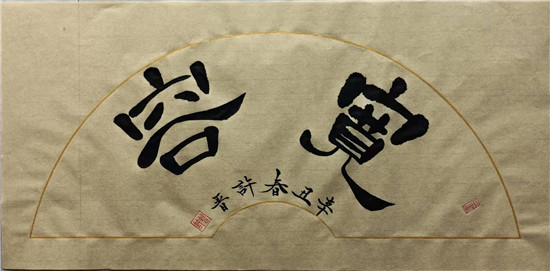 寬容
辛丑春許晉